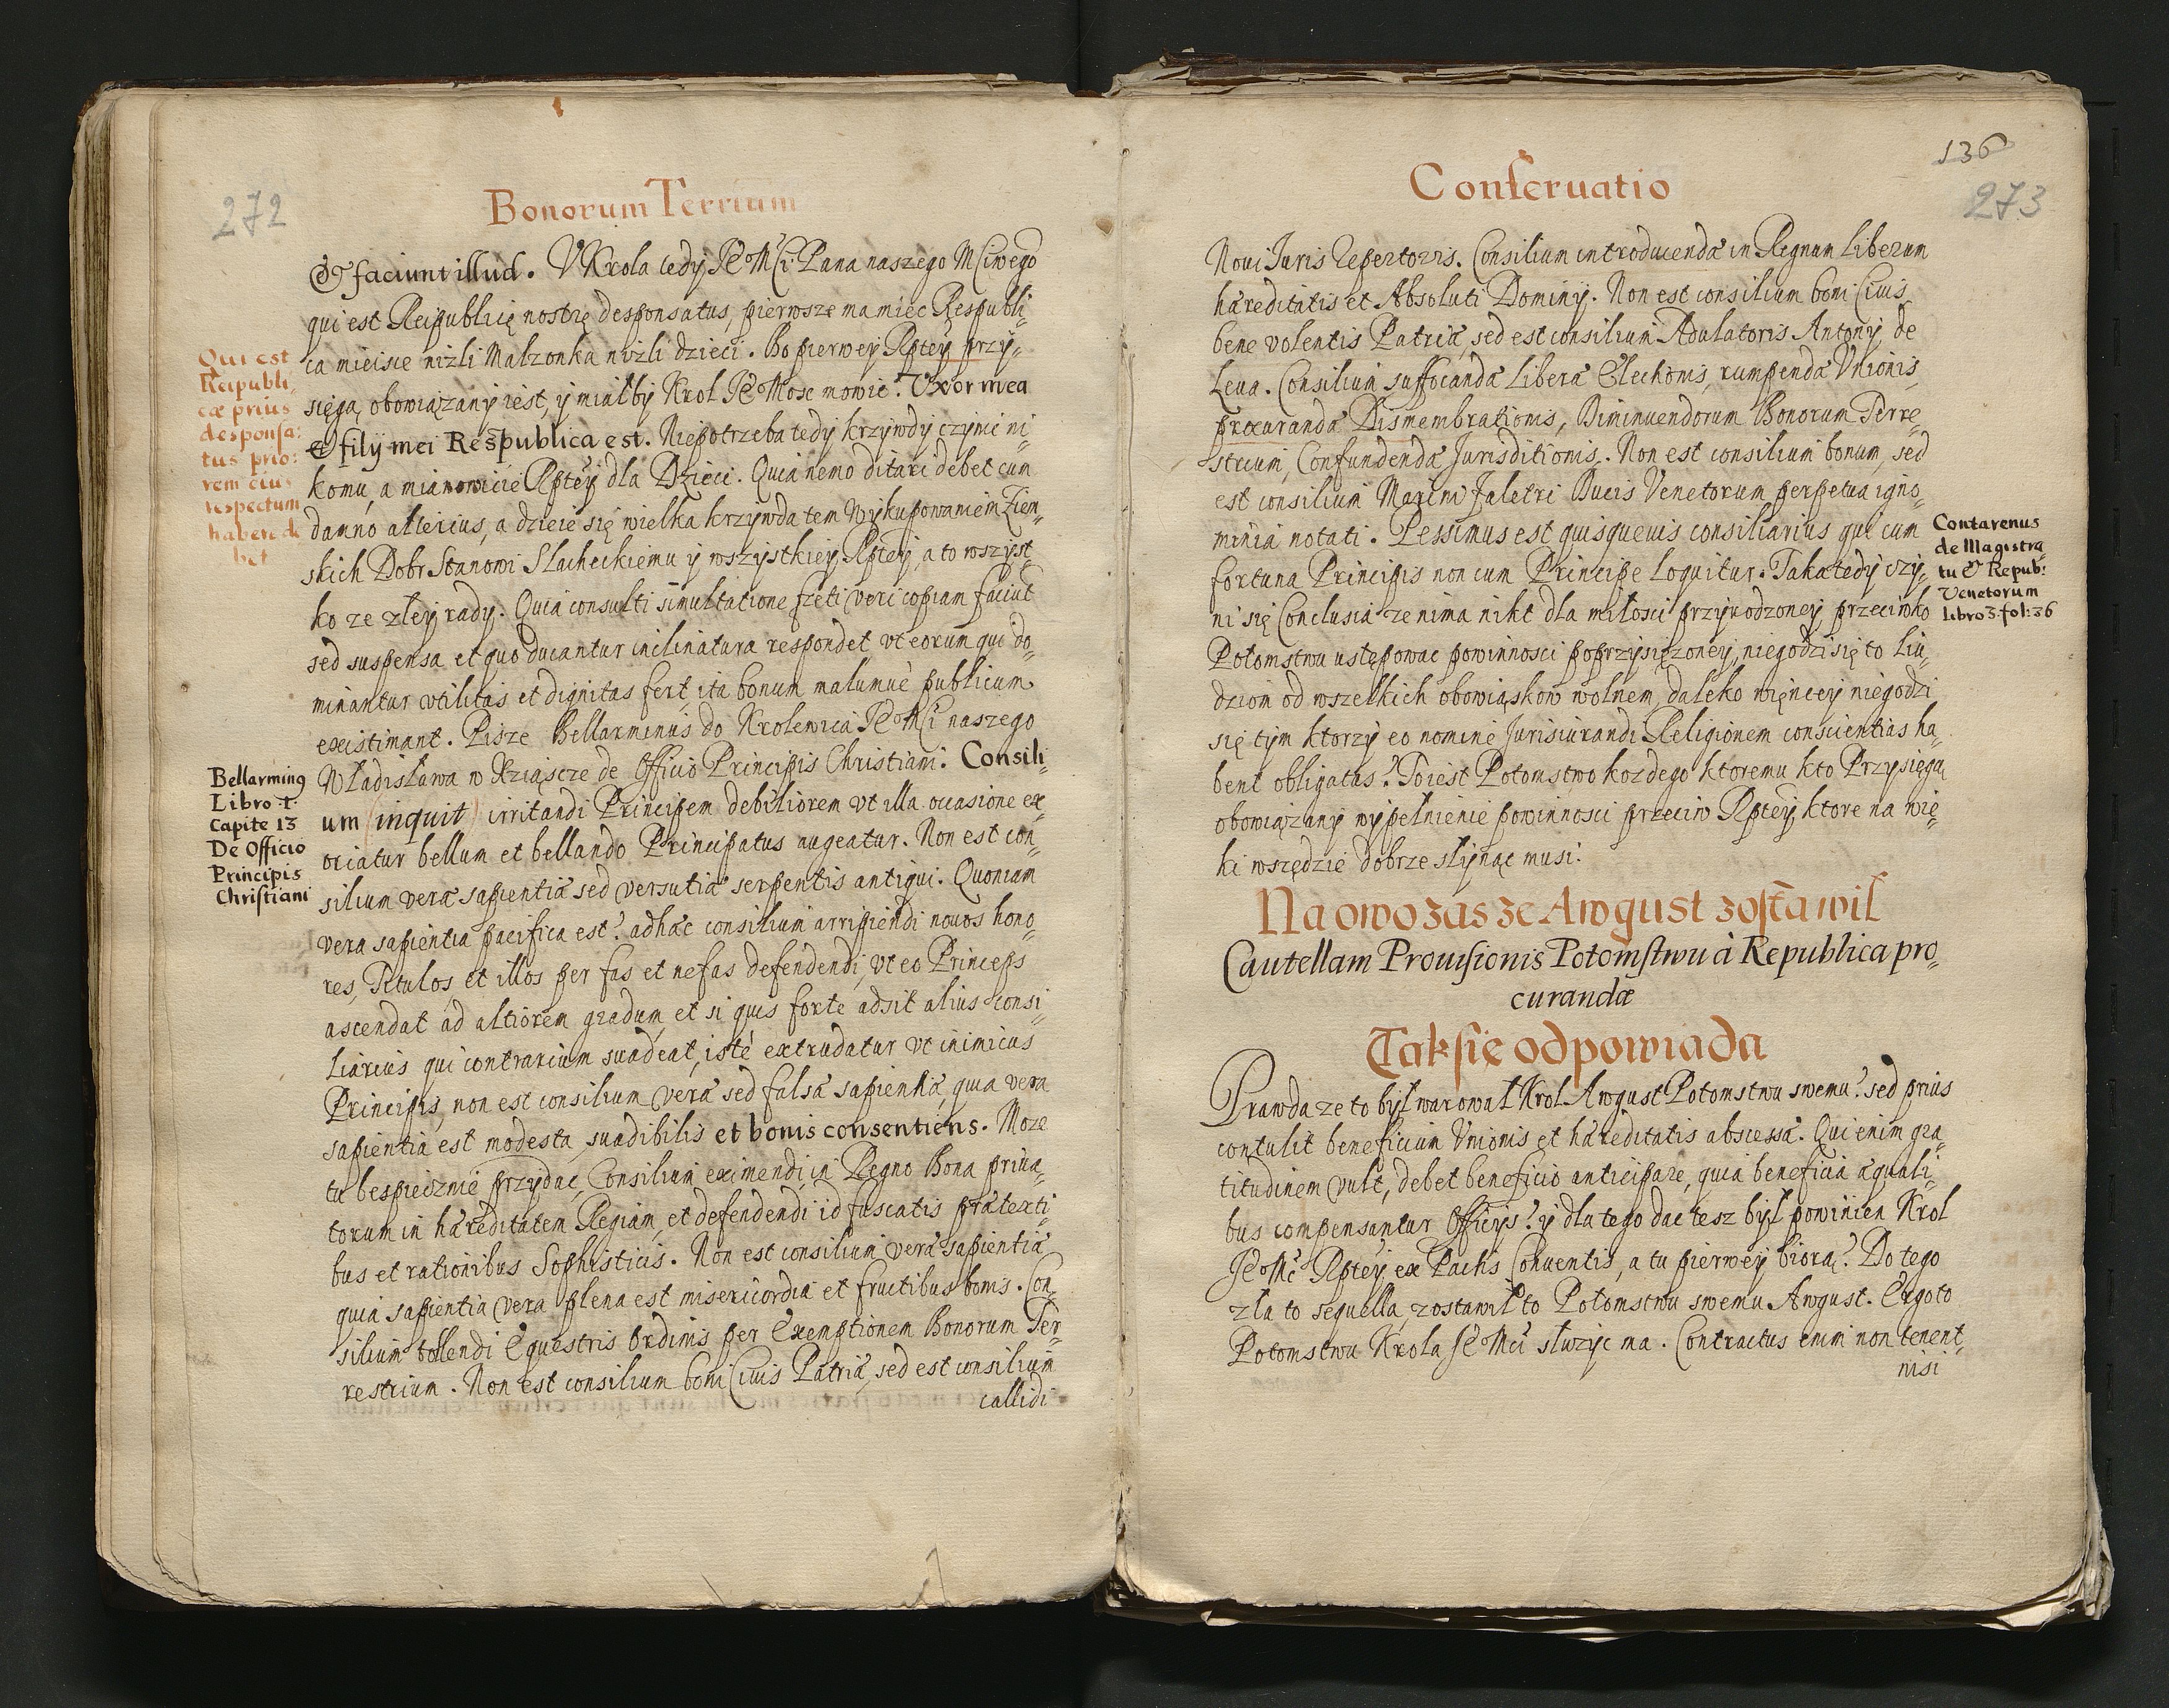 272
Bonorum Terrium
& faciunt illud. V Krola tedy JE° Mći Pana naszego Mciwego
qui est Reipublicę nostrę desponsatus, pierwsze ma miec Respubli=
ca mieisce nizli Malzonka nizli dzieci. Bo pierwey Rptey przy=
sięgą obowiązany iest, y miałby Krol JE° Mosc mowic. Vxor mea
& filij mei Respublica est. Niepotrzeba tedy krzywdy czynic ni=
komu, a mianowicie Rptey dla Dzieci. Quia nemo ditari debet cum
damno alterius, a dzieie się wielka krzywda tem Wykupowaniem Ziem=
skich Dobr Stanowi Slacheckiemu y wszystkiey Rptey, a to wszyst=
ko ze zley rady. Quia consulti simultatione freti veri copiam faciut
sed suspensa et quo ducantur inclinatura respondet vt eorum qui do=
minantur vtilitas et dignitas fert, ita bonum malumuè publicum
existimant. Pisze Bellarminus do Krolewica JE° Mći naszego
Władisława w Xziąscze de Officio Principis Christiani. Consili=
um (inquit) irritandi Principem debiliorem vt illa occasione ex=
oriatur bellum et bellando Principatus augeatur. Non est con=
silium veræ sapientiæ sed versutiæ serpentis antiqui. Quoniam
vera sapientia pacifica est? adhæc consilium arripiendi nouos hono=
res, Titulos et illos per fas et nefas defendendi, vt eo Princeps
ascendat ad altiorem gradum, et si quis forte adsit alius consi=
liarius qui contrarium suadeat, iste extrudatur vt inimicus
Principis, non est consilium veræ sed falsæ sapientiæ, quia vera
sapientia est modesta, suadibilis et bonis consentiens. Moze
tu bespiecznie przydac, Consilium eximendi in Regno Bona priua=
torum in hæreditatem Regiam, et defendendi id fuscatis prætexti=
bus et rationibus Sophisticis. Non est consilium veræ sapientiæ
quia sapientia vera plena est misericordia et fructibus bonis. Con=
silium tollendi Equestris Ordinis per Exemptionem Bonorum Ter=
restrium. Non est consilium boni Ciuis Patriæ, sed est consilium
callidi
Qui est
Reipubli=
cæ prius
desponsa:
tus prio:
rem eius
respectum
habere de
bet
Bellarming
Libro 1.
Capite 13
De Officio
Principis
Christiani
136
273
Conseruatio
Noui Juris Repertoris. Consilium introducendæ in Regnum Liberum
hæreditatis et Absoluti Dominij. Non est consilium boni Ciuis
bene volentis Patriæ, sed est consilium Adulatoris Antonij de
Leua. Consilium suffocandæ Liberæ Electionis, rumpendæ Vnionis,
procurandæ Dismembrationis, Diminuendorum Bonorum Terre=
strium, Confundendæ Jurisditionis. Non est consilium bonum, sed
est consilium Marini Faletri Ducis Venetorum perpetua igno=
minia notati. Pessimus est quisqueuis consiliarius qui cum
fortuna Principis non cum Principe loquitur. Taka tedy czy=
ni się Conclusia ze nima nikt dla miłosci przyrodzoney przeciwko
Potomstwu ustępowac powinnosci poprzysięzoney, niegodzi się to Lu=
dziom od wszelkich obowiąskow wolnem, daleko więncey niegodzi
się tym ktorzy eo nomine Jurisiurandi Religionem conscientias ha=
bent obligatas? To iest Potomstwo kozdego ktoremu kto Przysięgą
obowiązany wypełnienie powinnosci przeciw Rptey, ktore na wie=
ki wszędzie dobrze słynąc musi.
Na owo zas ze Awgust zostawil
Cautellam Prouisionis Potomstwu à Republica pro=
curandæ
Tak sie odpowiada
Prawda ze to był warował Krol Awgust Potomstwu swemu? sed prius
contulit beneficium Vnionis et hæreditatis abscessæ. Qui enim gra=
titudinem vult, debet beneficio anticipare, quia beneficia æquali=
bus compensantur Officijs? y dla tego dac tesz był powinien Krol
JE° Mć Rptey ex Pactis Conuentis, a tu pierwey biorą? Do tego
zla to sequella, zostawił to Potomstwu swemu Awgust. Ergo to
Potomstwu Krola JE° Mci słuzyc ma. Contractus enim non tenent,
nisi
Contarenus
de Magistra=
tu & Repub:
Venetorum
libro 3. fol: 36